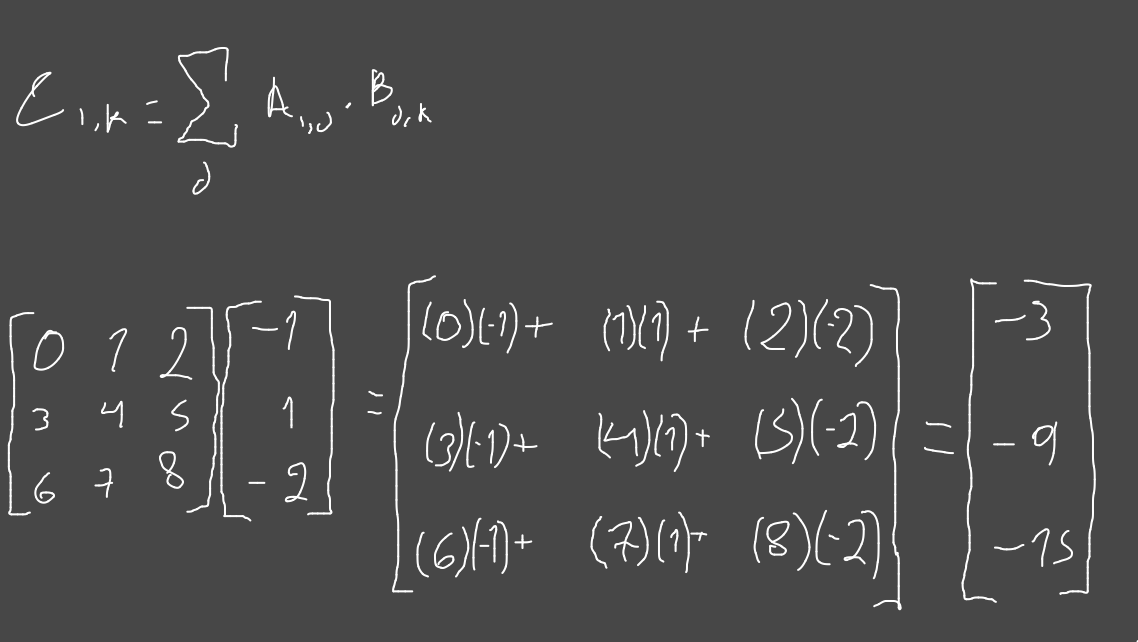 C i,k = ∑ j A i,j · B j,k
[0 1 2; 3 4 5; 6 7 8] [-1; 1; -2] = [(0)(-1)+ (1)(1)+ (2)(-2); (3)(-1)+ (4)(1)+ (5)(-2); (6)(-1)+ (7)(1)+ (8)(-2)] = [-3; -9; -15]